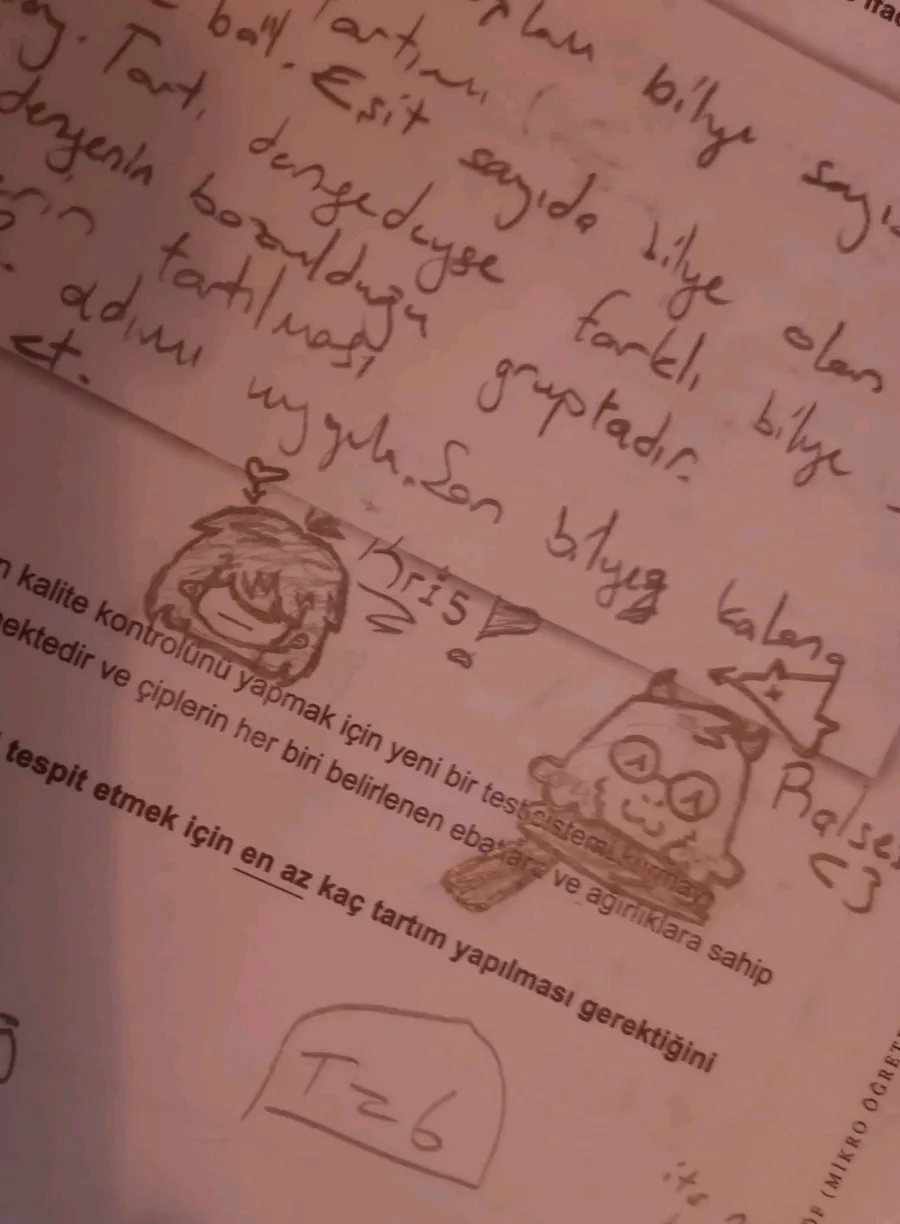 bilye sayı
Tartımı
böl. Eşit sayıda bilye olan
Tart, dengedeyse farklı bilye
dengenin bozulduğu gruptadır.
tartılması
adımı uygula. Son bilyeg kalana
et.
Kris!
Ralsei
<3
n kalite kontrolünü yapmak için yeni bir test sistemi kurmay
mektedir ve çiplerin her biri belirlenen ebatlara ve ağırlıklara sahip
tespit etmek için en az kaç tartım yapılması gerektiğini
T=6
its
(MİKRO ÖĞRET